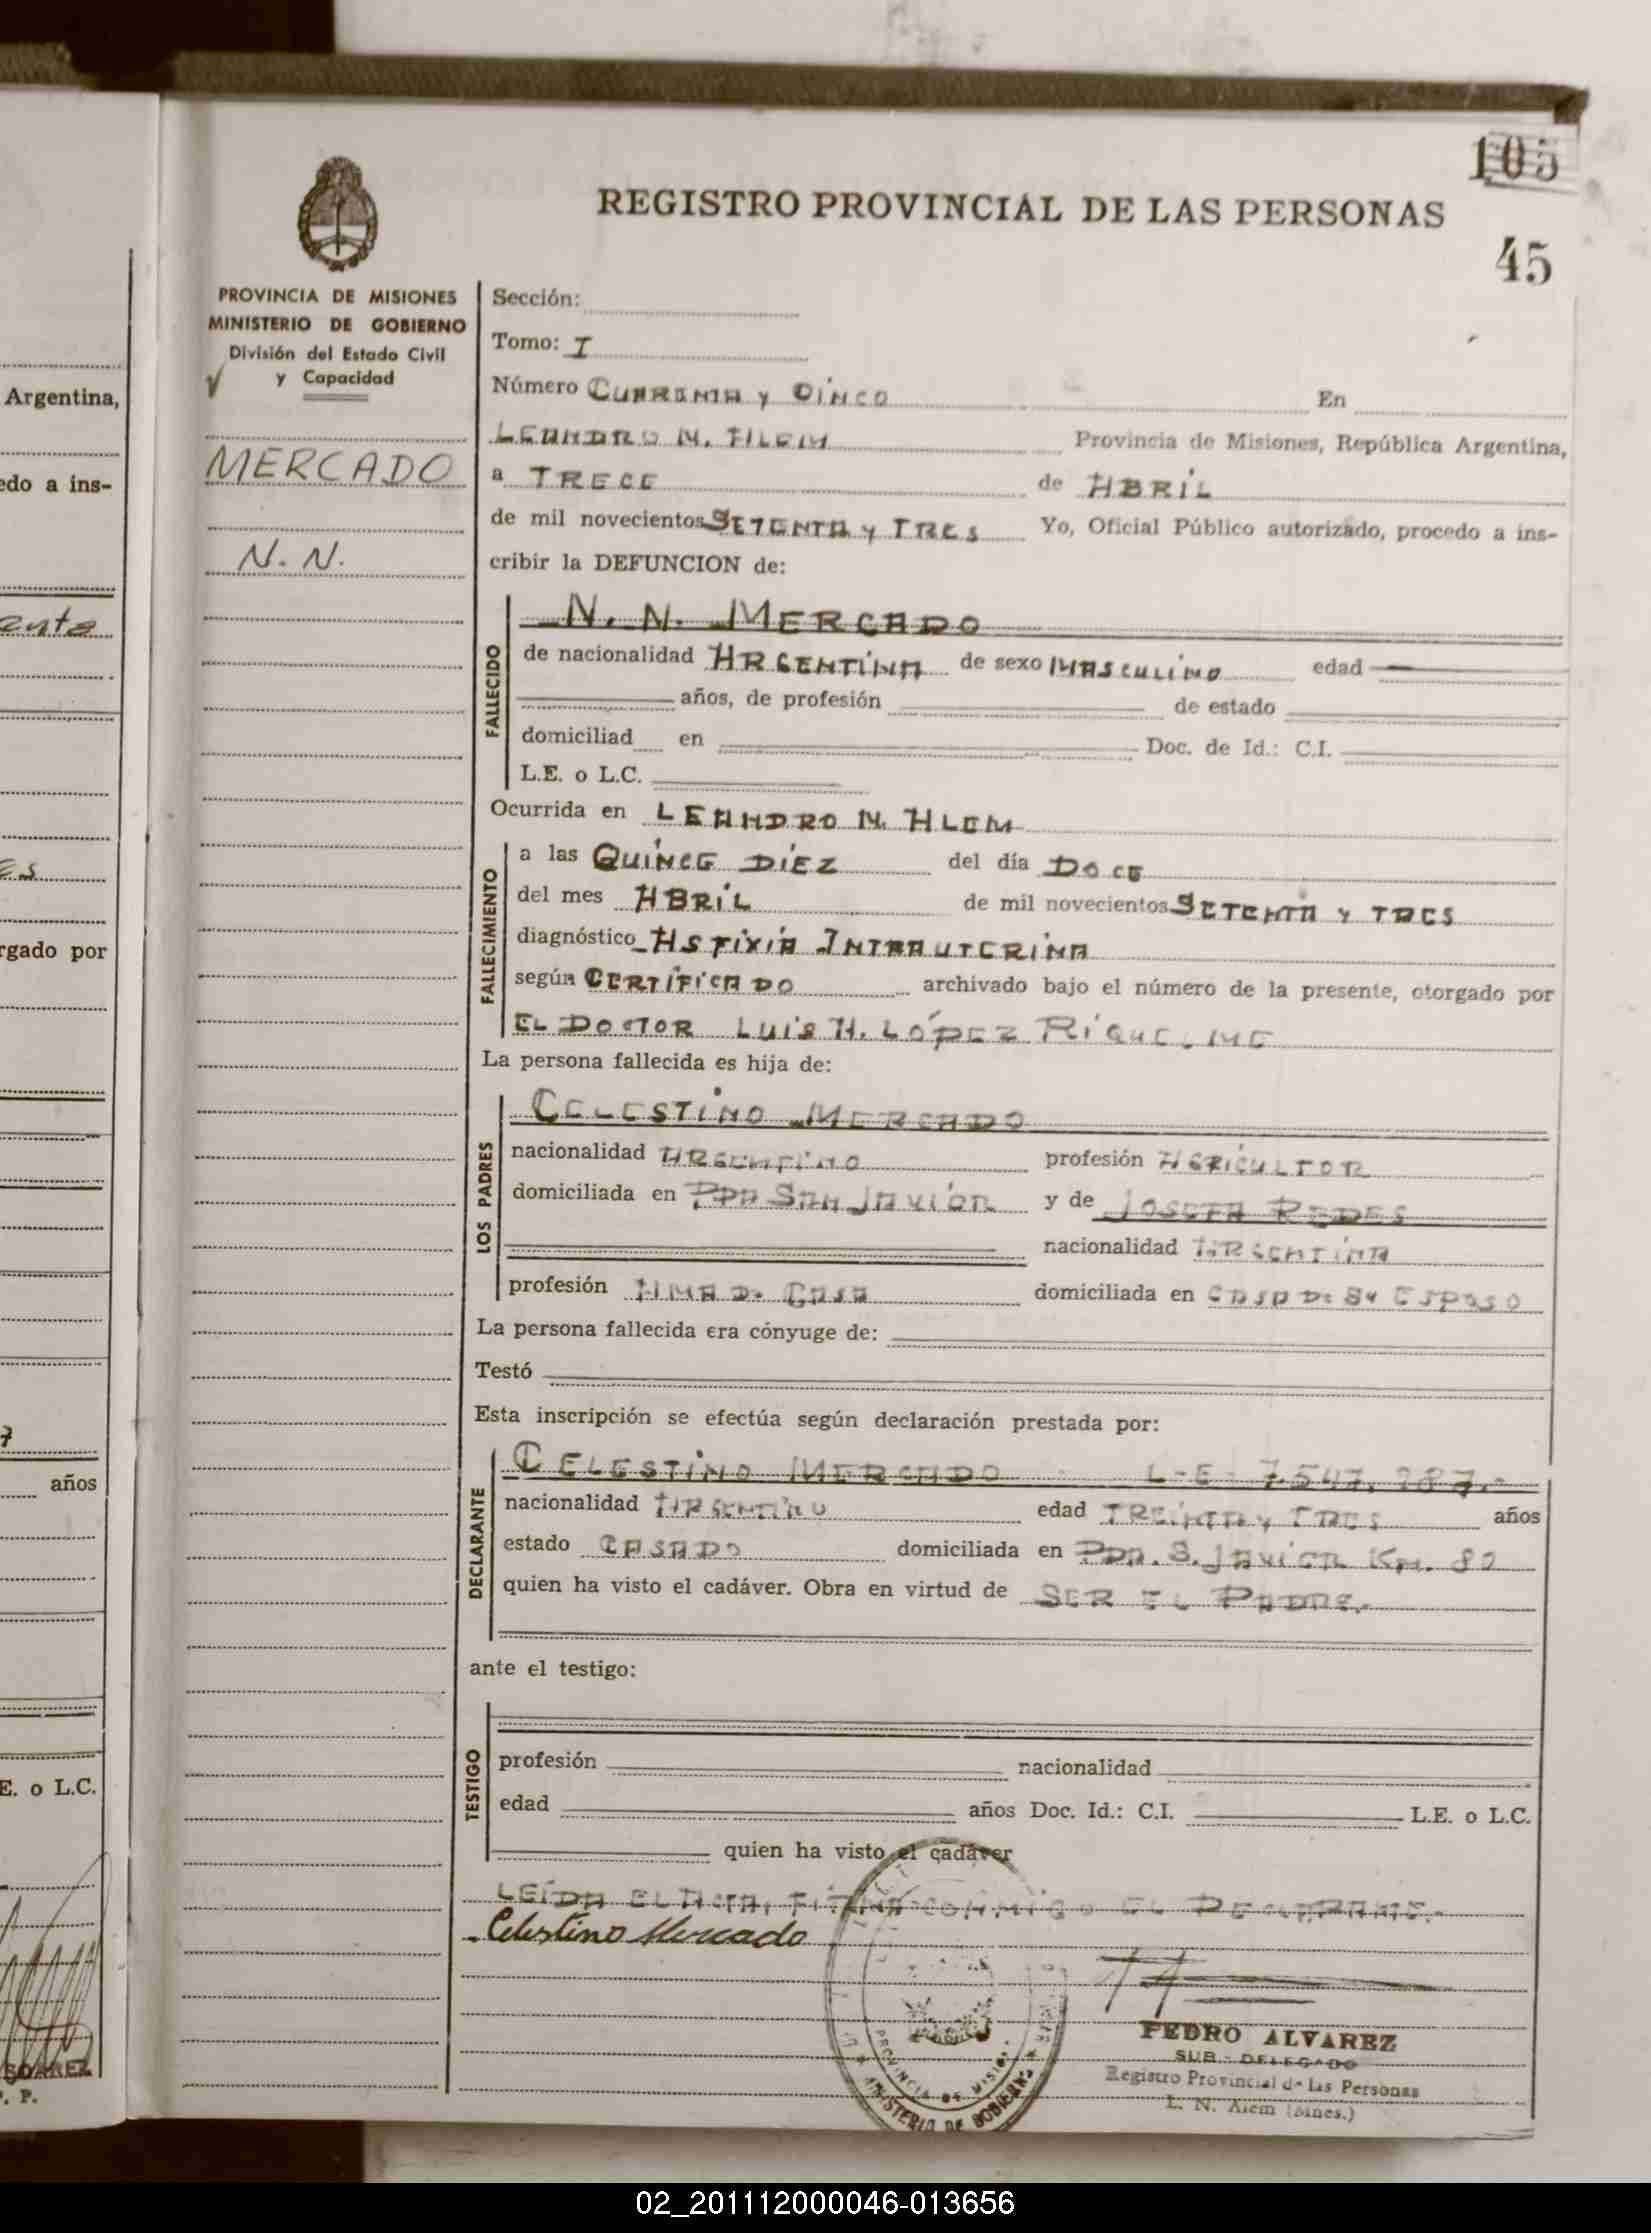 105
REGISTRO PROVINCIAL DE LAS PERSONAS
45
PROVINCIA DE MISIONES
MINISTERIO DE GOBIERNO
División del Estado Civil
y Capacidad
MERCADO
N. N.
Sección:
Tomo: I
Número CUARENTA y CINCO En
LEANDRO N. ALEM Provincia de Misiones, República Argentina,
a TRECE de ABRIL
de mil novecientos SETENTA y TRES Yo, Oficial Público autorizado, procedo a ins-
cribir la DEFUNCION de:
FALLECIDO
N. N. MERCADO
de nacionalidad ARGENTINA de sexo MASCULINO edad
años, de profesión de estado
domiciliad en Doc. de Id.: C.I.
L.E. o L.C.
Ocurrida en LEANDRO N. ALEM
FALLECIMIENTO
a las QUINCE DIEZ del día DOCE
del mes ABRIL de mil novecientos SETENTA y TRES
diagnóstico ASFIXIA INTRAUTERINA
según CERTIFICADO archivado bajo el número de la presente, otorgado por
EL DOCTOR LUIS A. LÓPEZ RIQUE.ME
La persona fallecida es hija de:
LOS PADRES
CELESTINO MERCADO
nacionalidad ARGENTINO profesión AGRICULTOR
domiciliada en PDA SAN JAVIER y de JOSEFA REDES
nacionalidad ARGENTINA
profesión AMA D. CASA domiciliada en CASA DE SU ESPOSO
La persona fallecida era cónyuge de:
Testó
Esta inscripción se efectúa según declaración prestada por:
DECLARANTE
CELESTINO MERCADO L-E- 7.547.
nacionalidad ARGENTINO edad TREINTA y TRES años
estado CASADO domiciliada en PDA. S. JAVIER KM. 80
quien ha visto el cadáver. Obra en virtud de SER EL PADRE.
ante el testigo:
TESTIGO
profesión nacionalidad
edad años Doc. Id.: C.I. L.E. o L.C.
quien ha visto el cadáver
LEÍDA EL ACTA, FIRMA CONMIGO EL DECLARANTE.-
Celestino Mercado
PROVINCIA DE MISIONES
MINISTERIO DE GOBIERNO
PEDRO ALVAREZ
SUB-DELEGADO
Registro Provincial de las Personas
L. N. Alem (Mnes.)
Argentina,
edo a ins-
rgado por
años
E. o L.C.
SOAREZ
P. P.
02_201112000046-013656